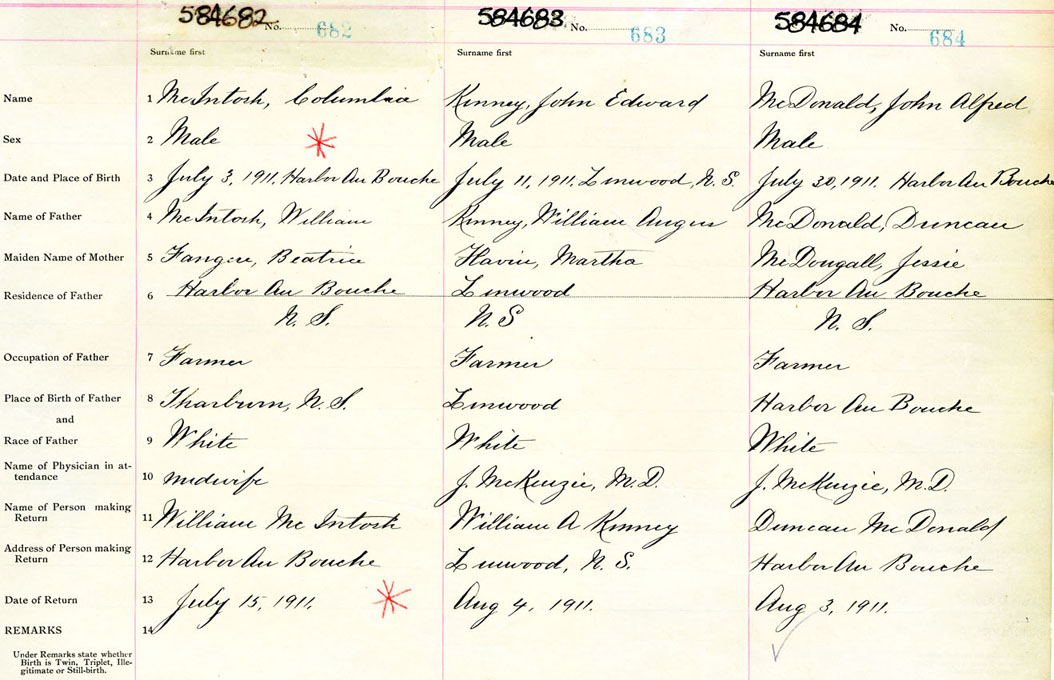 584682 No. 682 584683 No. 683 584684 No. 684
Surname first Surname first Surname first
Name 1 McIntosh, Columbia Kinney, John Edward McDonald, John Alfred
Sex 2 Male Male Male
Date and Place of Birth 3 July 3, 1911. Harbor Au Bouche July 11, 1911. Linwood, N.S. July 30, 1911. Harbor Au Bouche
Name of Father 4 McIntosh, William Kinney, William Angus McDonald, Duncan
Maiden Name of Mother 5 Beatrice Martha McDougall, Jessie
Residence of Father 6 Harbor Au Bouche Linwood Harbor Au Bouche
N. S. N. S N. S.
Occupation of Father 7 Farmer Farmer Farmer
Place of Birth of Father 8 N. S. Linwood Harbor Au Bouche
and
Race of Father 9 White White White
Name of Physician in at-
tendance 10 midwife J. McKenzie, M.D. J. McKenzie, M.D.
Name of Person making
Return 11 William Mc Intosh William A Kinney Duncan McDonald
Address of Person making
Return 12 Harbor Au Bouche Linwood, N. S. Harbor Au Bouche
Date of Return 13 July 15, 1911. Aug 4, 1911. Aug 3, 1911.
REMARKS 14
Under Remarks state whether
Birth is Twin, Triplet, Ille-
gitimate or Still-birth.